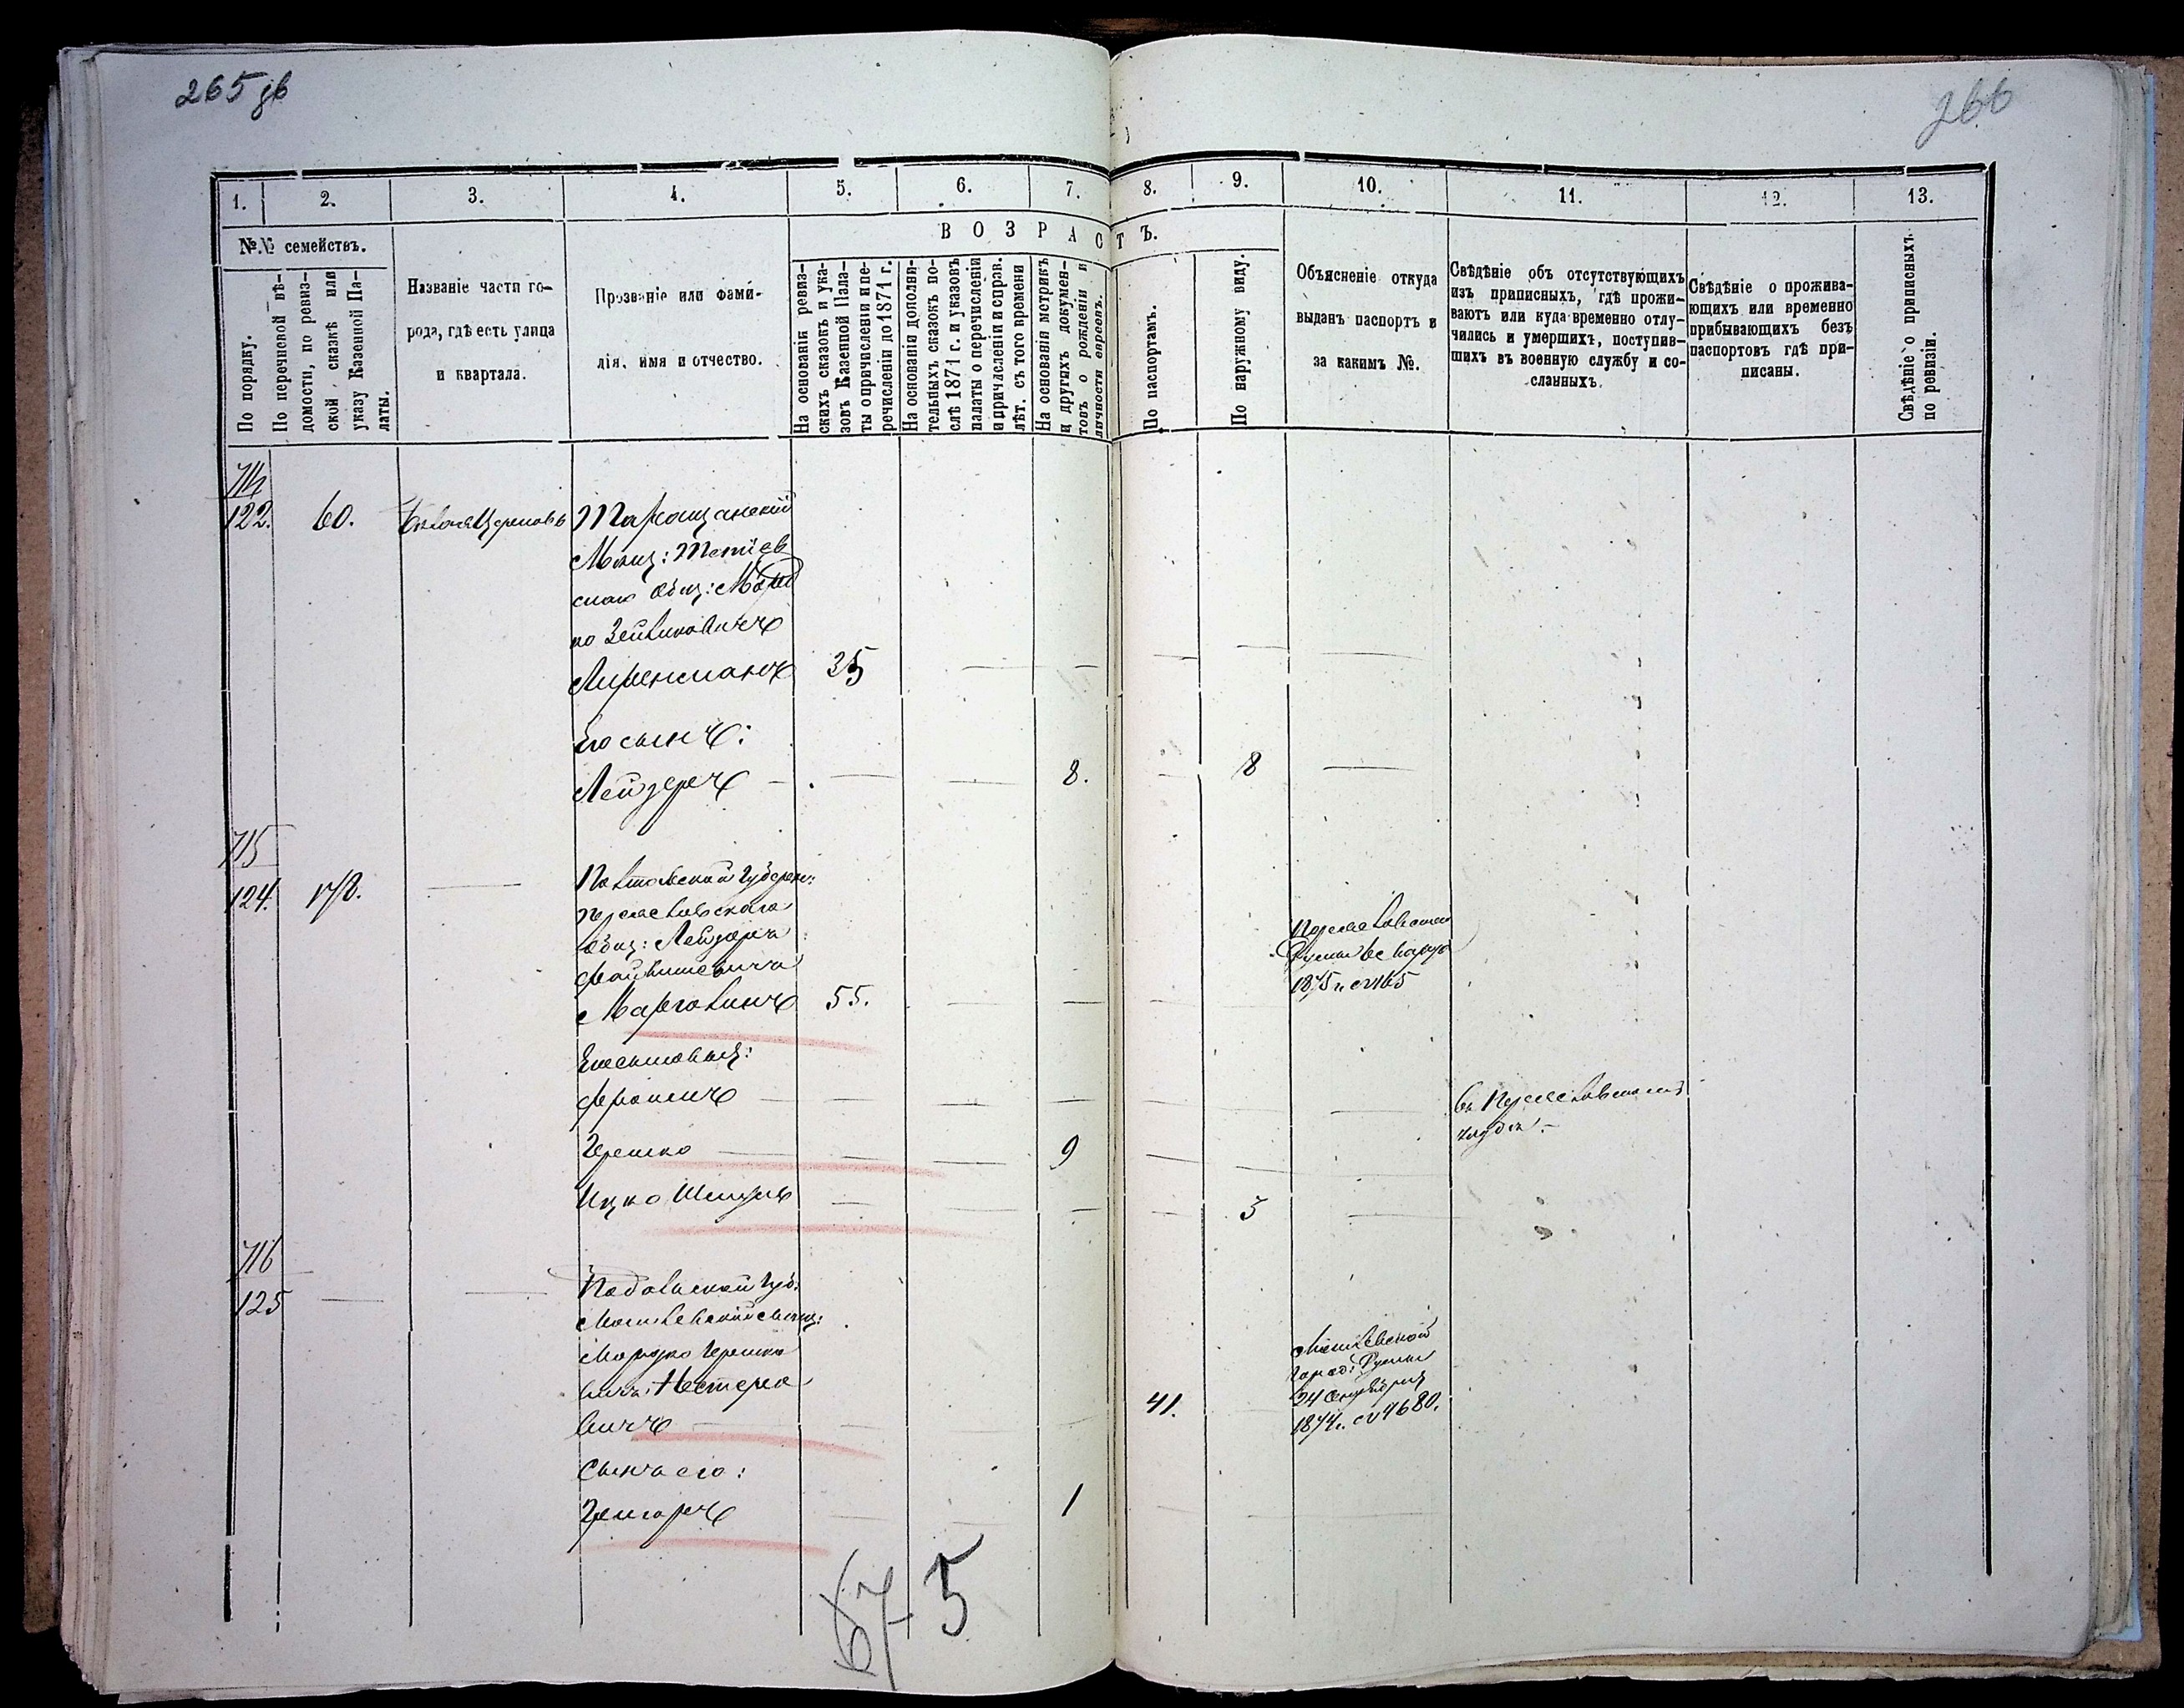 265 зв
266
1.
2.
3.
4.
5.
6.
7.
8.
9.
10.
11.
12.
13.
№.№ семействъ.
ВОЗРАСТЪ.
По порядку.
По перечневой вѣ-
домости, по ревиз-
ской сказкѣ или
указу Казенной Па-
латы.
Названіе части го-
рода, гдѣ есть улица
и квартала.
Прозваніе или фами-
лія, имя и отчество.
На основаніи ревиз-
скихъ сказокъ и ука-
зовъ Казенной Пала-
ты о причисленіи и пе-
речисленіи до 1871 г.
На основаніи дополни-
тельныхъ сказокъ по-
слѣ 1871 г. и указовъ
палаты о перечисленіи
и причисленіи и справ.
лѣт. съ того времени
На основаніи метрикъ
и другихъ докумен-
товъ о рожденіи и
личности евреевъ.
По паспортамъ.
По наружному виду.
Объясненіе откуда
выданъ паспортъ и
за какимъ №.
Свѣдѣніе объ отсутствующихъ
изъ приписныхъ, гдѣ прожи-
ваютъ или куда временно отлу-
чились и умершихъ, поступив-
шихъ въ военную службу и со-
сланныхъ.
Свѣдѣніе о прожива-
ющихъ или временно
прибывающихъ безъ
паспортовъ гдѣ при-
писаны.
Свѣдѣніе о приписныхъ
по ревизіи.
714
122. 60. Бѣлая Церковь Таращанскій
Мѣщ: Тетіев
скаго Общ:
ко Зейликовичъ
35
Его сынъ:
Лейзеръ — — — 8. — 8 —
715
124. 178. — Полтавской Губерн:
Переяславскаго
Общ: Лейзеръ
Файвишевичъ
Марголинъ 55. — — —
Переяславской
1875 г. №165
Его сыновья:
Фроимъ — — — — —
въ Переяславском
Гершко — — — 9 — —
Ицко — — — — 3 —
716
125 — — Подольской Губ:
Могилевскій мѣщ:
Мордко Гершко
вичъ Нестеро
вичъ — — — 41. —
Могилевской
Город: Думы
24
1874 г. №4680.
Сынъ его:
— — 1 — — —
67 5